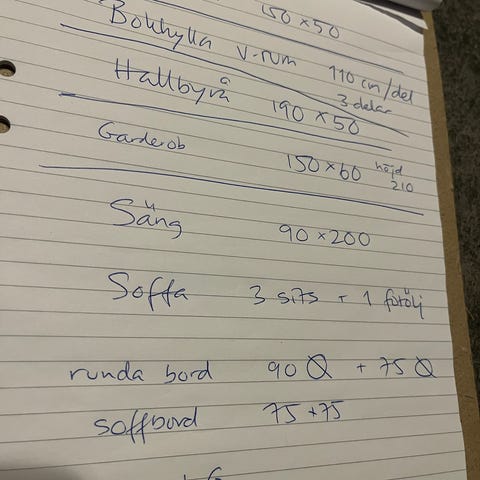 150 x 50
Bokhylla v-rum 110 cm/del
3 delar
Hallbyrå 190 x 50
Garderob 150 x 60 höjd
210
Säng 90 x 200
Soffa 3 sits + 1 fötölj
runda bord 90 Ø + 75 Ø
soffbord 75 + 75